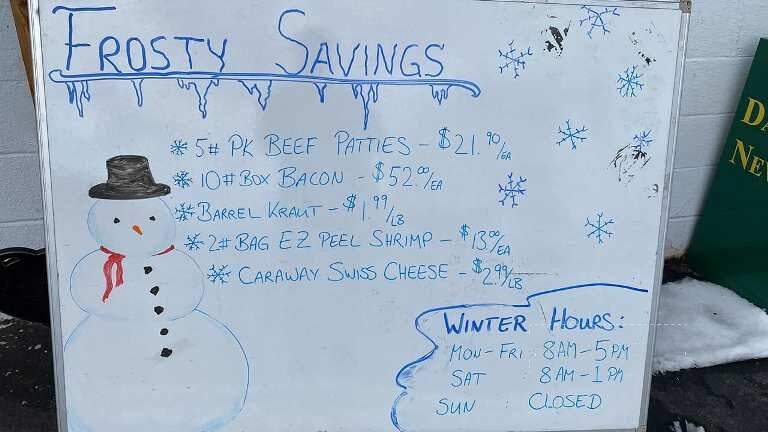 FROSTY SAVINGS
5# PK BEEF PATTIES - $21.90/EA
10# BOX BACON - $52.00/EA
BARREL KRAUT - $1.99/LB
2# BAG EZ PEEL SHRIMP - $13.00/EA
CARAWAY SWISS CHEESE - $2.99/LB
WINTER HOURS:
MON-FRI 8AM-5PM
SAT 8AM-1PM
SUN CLOSED